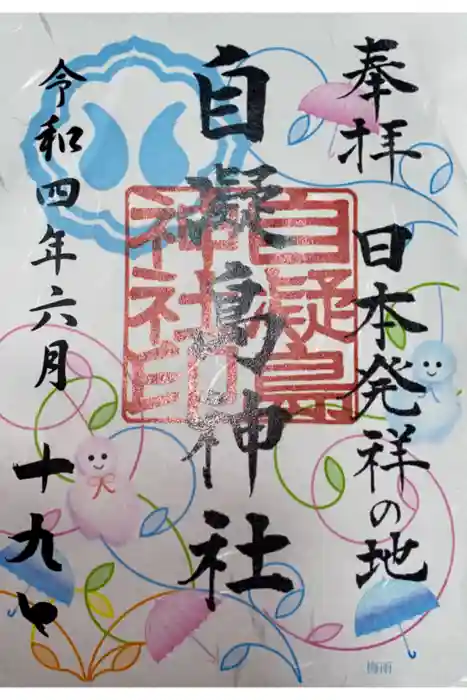 奉拝
日本発祥の地
自凝島神社
自凝島
神社印
令和四年六月
十九日
梅雨